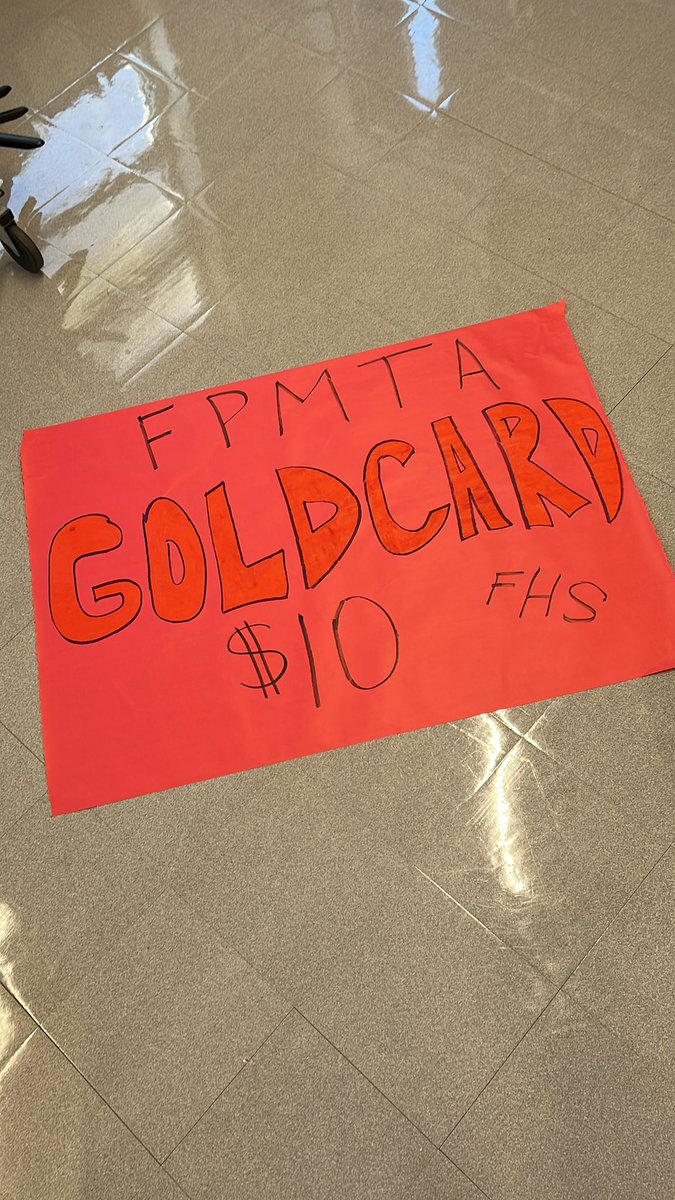 FPMTA
GOLDCARD
$10
FHS